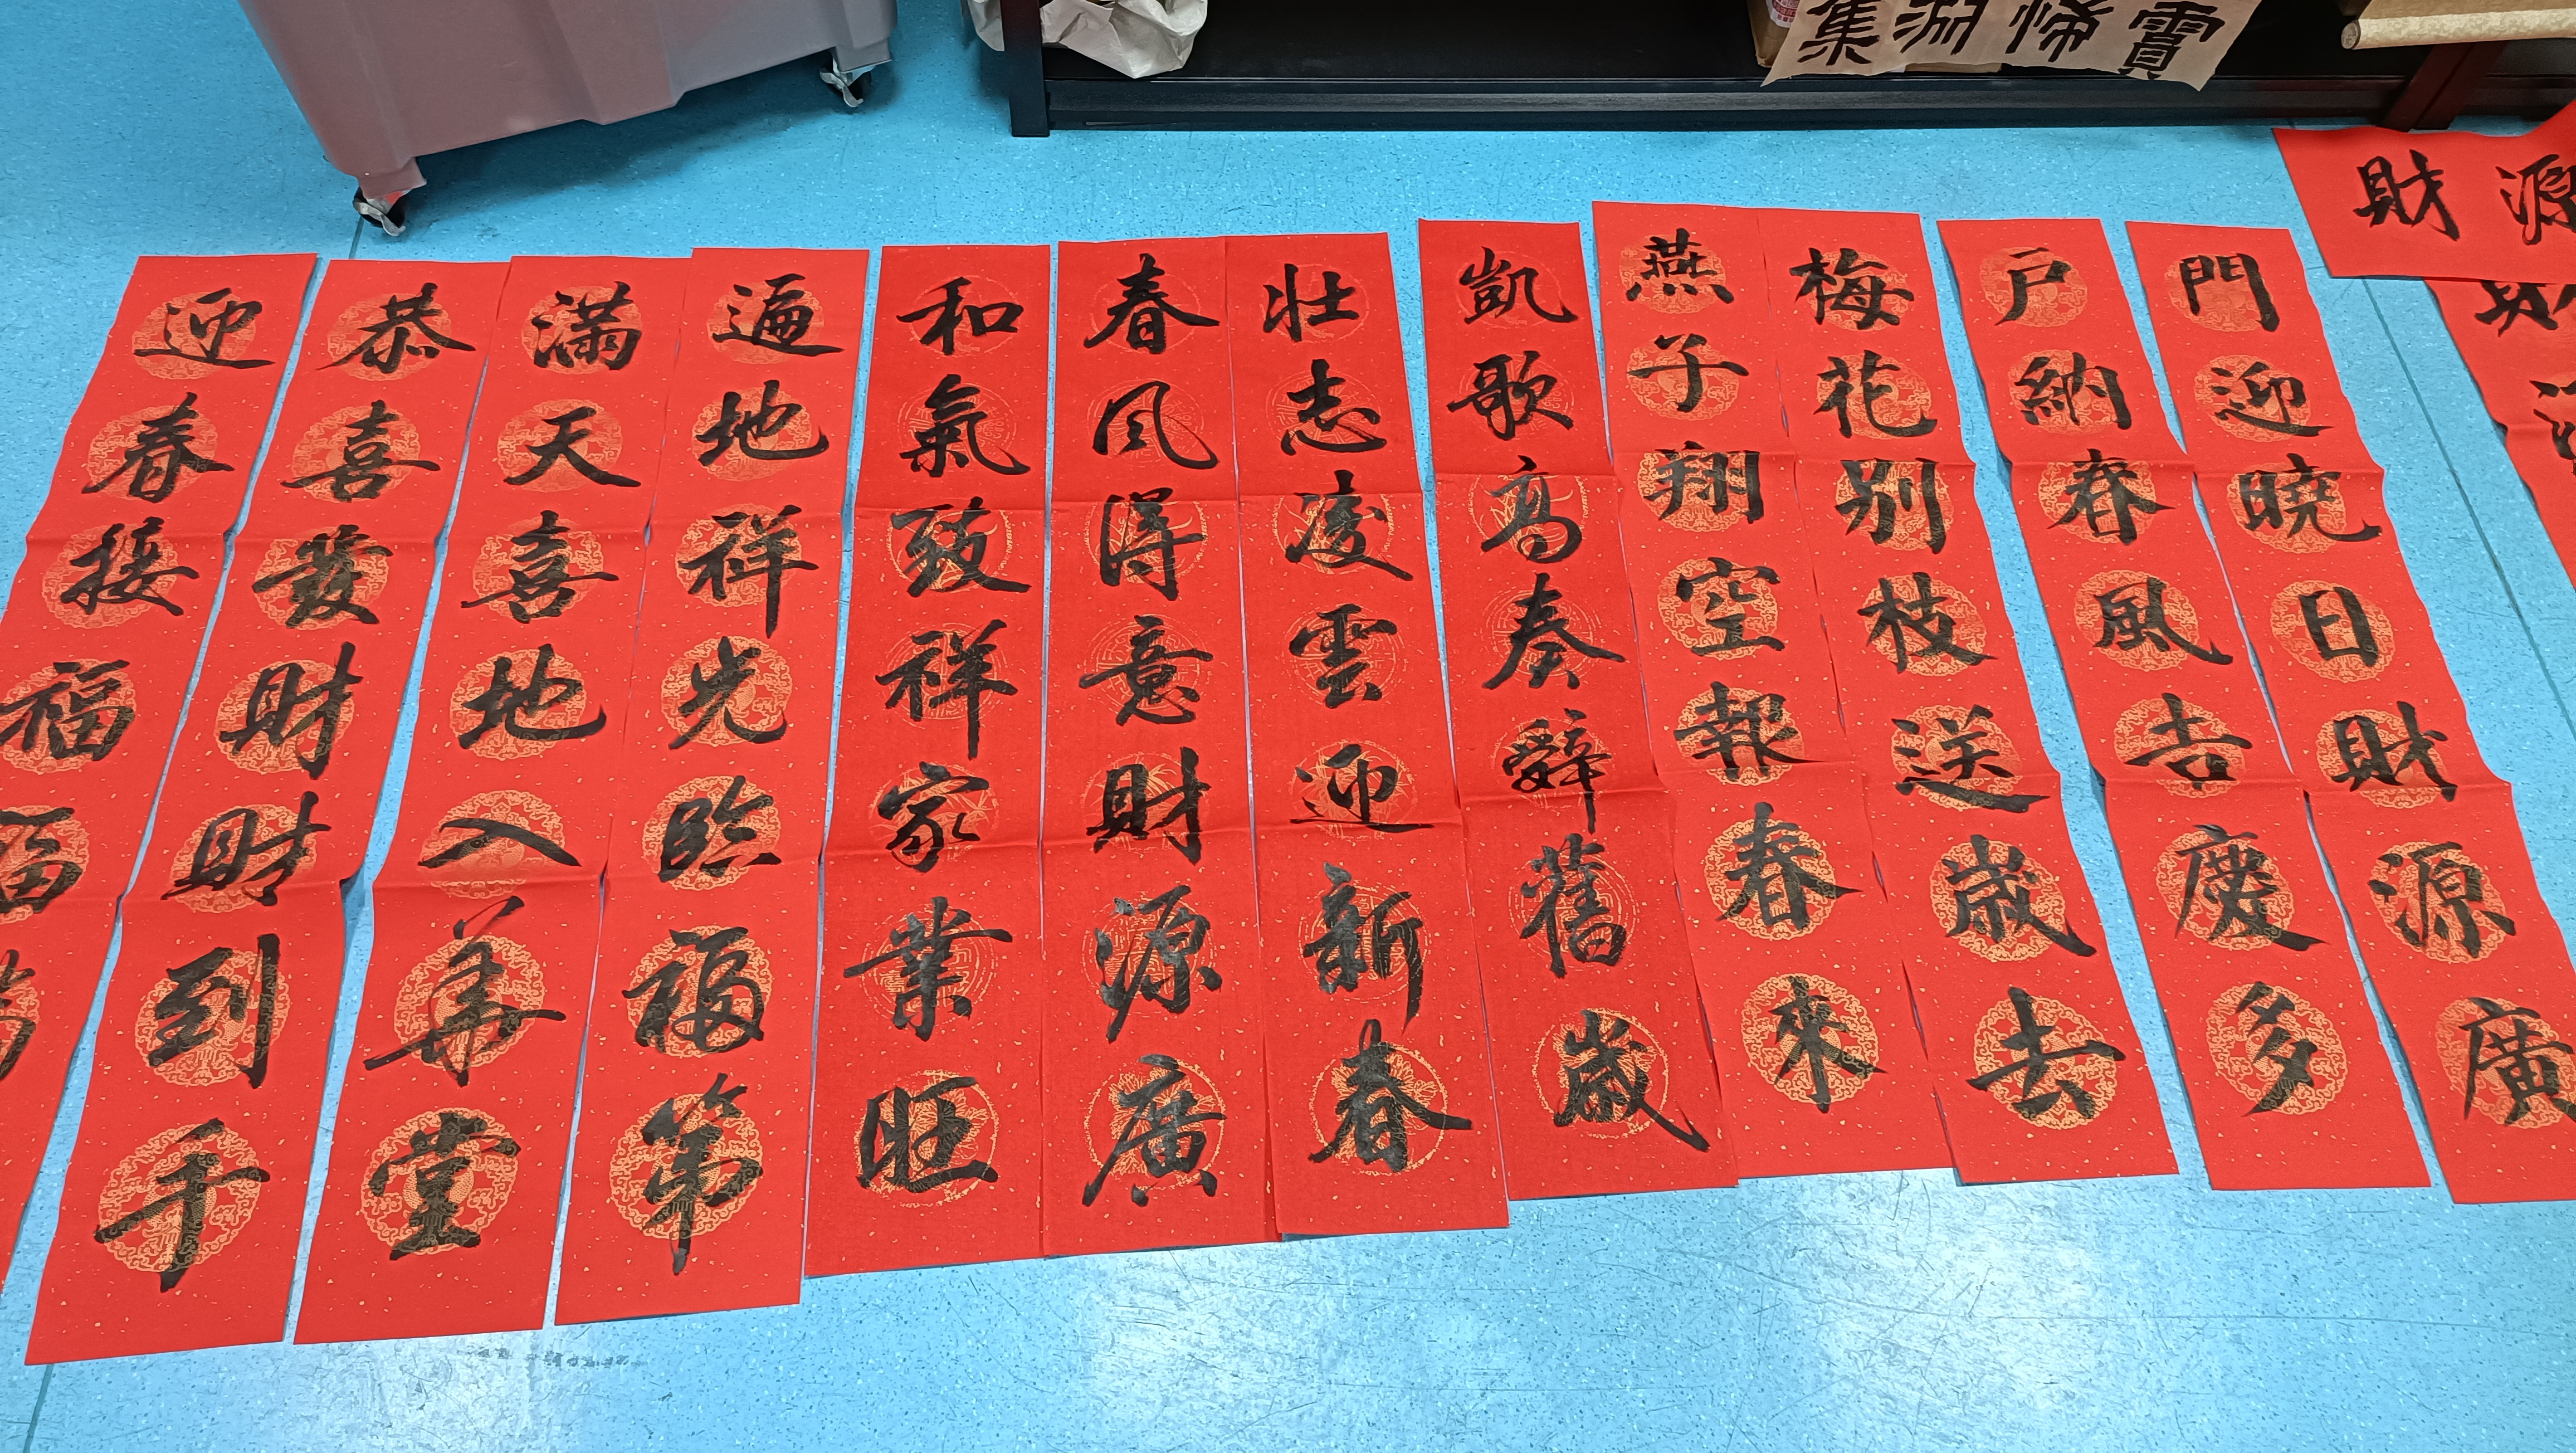 財源
門迎曉日財源廣
戶納春風吉慶多
梅花别枝送歲去
燕子翔空報春來
凱歌高奏辭舊歲
壯志凌雲迎新春
春风得意財源廣
和氣致祥家業旺
遍地祥光臨福第
滿天喜地入華堂
恭喜發財財到千
迎春接福福